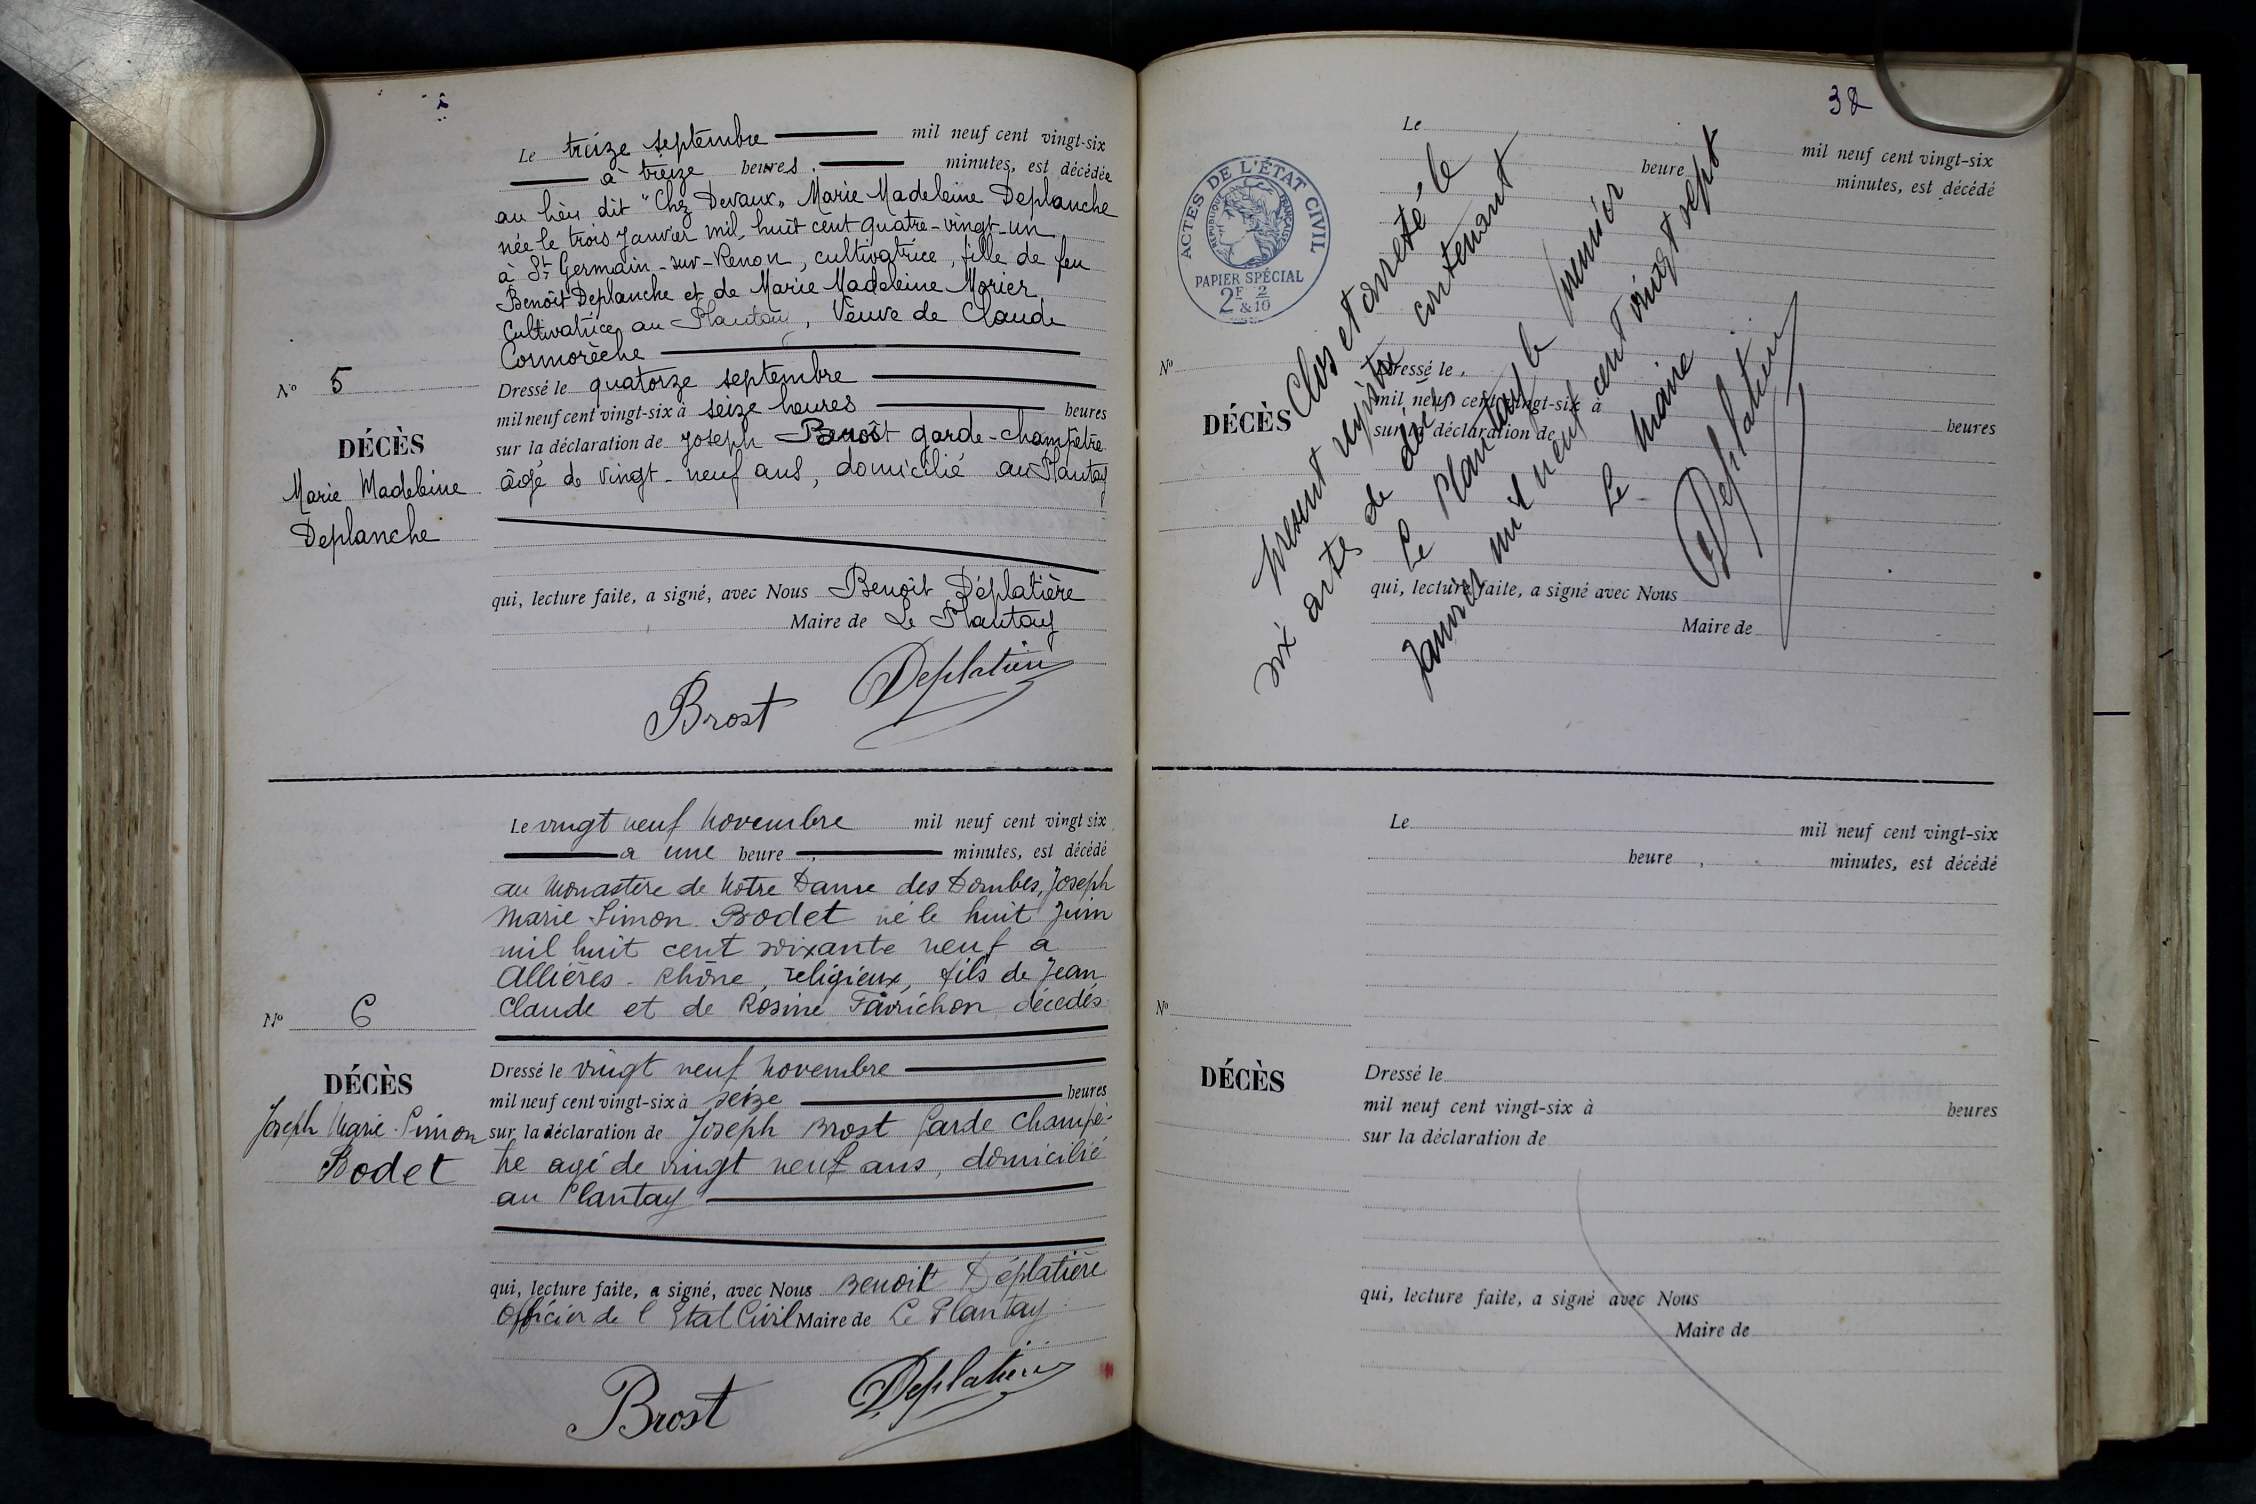 Le treize septembre mil neuf cent vingt-six
à treize heures, minutes, est décédée
au lieu dit "Chez Devaux" Marie Madeleine Deplanche
née le trois Janvier mil huit cent quatre-vingt-un
à St Germain-sur-Renon, cultivatrice, fille de feu
Benoît Deplanche et de Marie Madeleine Morier
Cultivatrice au Plantay, Veuve de Claude
Cormorèche
Nº 5
DÉCÈS
Marie Madeleine
Deplanche
Dressé le quatorze septembre
mil neuf cent vingt-six à seize heures heures
sur la déclaration de Joseph garde-champêtre
âgé de vingt-neuf ans, domicilié au Plantay
qui, lecture faite, a signé, avec Nous Benoît Déplatière
Maire de Le Plantay
Brost Deplatière
Le vingt neuf Novembre mil neuf cent vingt six
a une heure, minutes, est décédé
au Monastère de Notre Dame des Dombes, Joseph
Marie Simon Bodet né le huit Juin
mil huit cent soixante neuf a
Allières - Rhône, religieux, fils de Jean
Claude et de Rosine Favrichon décedés
Nº 6
DÉCÈS
Joseph Marie-Simon
Bodet
Dressé le vingt neuf Novembre
mil neuf cent vingt-six à seize heures
sur la déclaration de Joseph Brost Garde Champê-
tre agé de vingt neuf ans, domicilié
au Plantay
qui, lecture faite, a signé, avec Nous Benoit Déplatière
Officier de l'Etat Civil Maire de Le Plantay
Brost Deplatière
32
ACTES DE L'ÉTAT CIVIL
RÉPUBLIQUE FRANÇAISE
PAPIER SPÉCIAL
2F 2
& 10
Le mil neuf cent vingt-six
heure minutes, est décédé
Nº
DÉCÈS
Dressé le
mil neuf cent vingt-six à heures
sur la déclaration de
qui, lecture faite, a signé avec Nous
Maire de
Clos et arreté le
présent registre contenant
six actes de décès
Le Plantay le premier
Janvier mil neuf cent vingt sept
Le Maire
Deplatière
Le mil neuf cent vingt-six
heure, minutes, est décédé
Nº
DÉCÈS
Dressé le
mil neuf cent vingt-six à heures
sur la déclaration de
qui, lecture faite, a signé avec Nous
Maire de